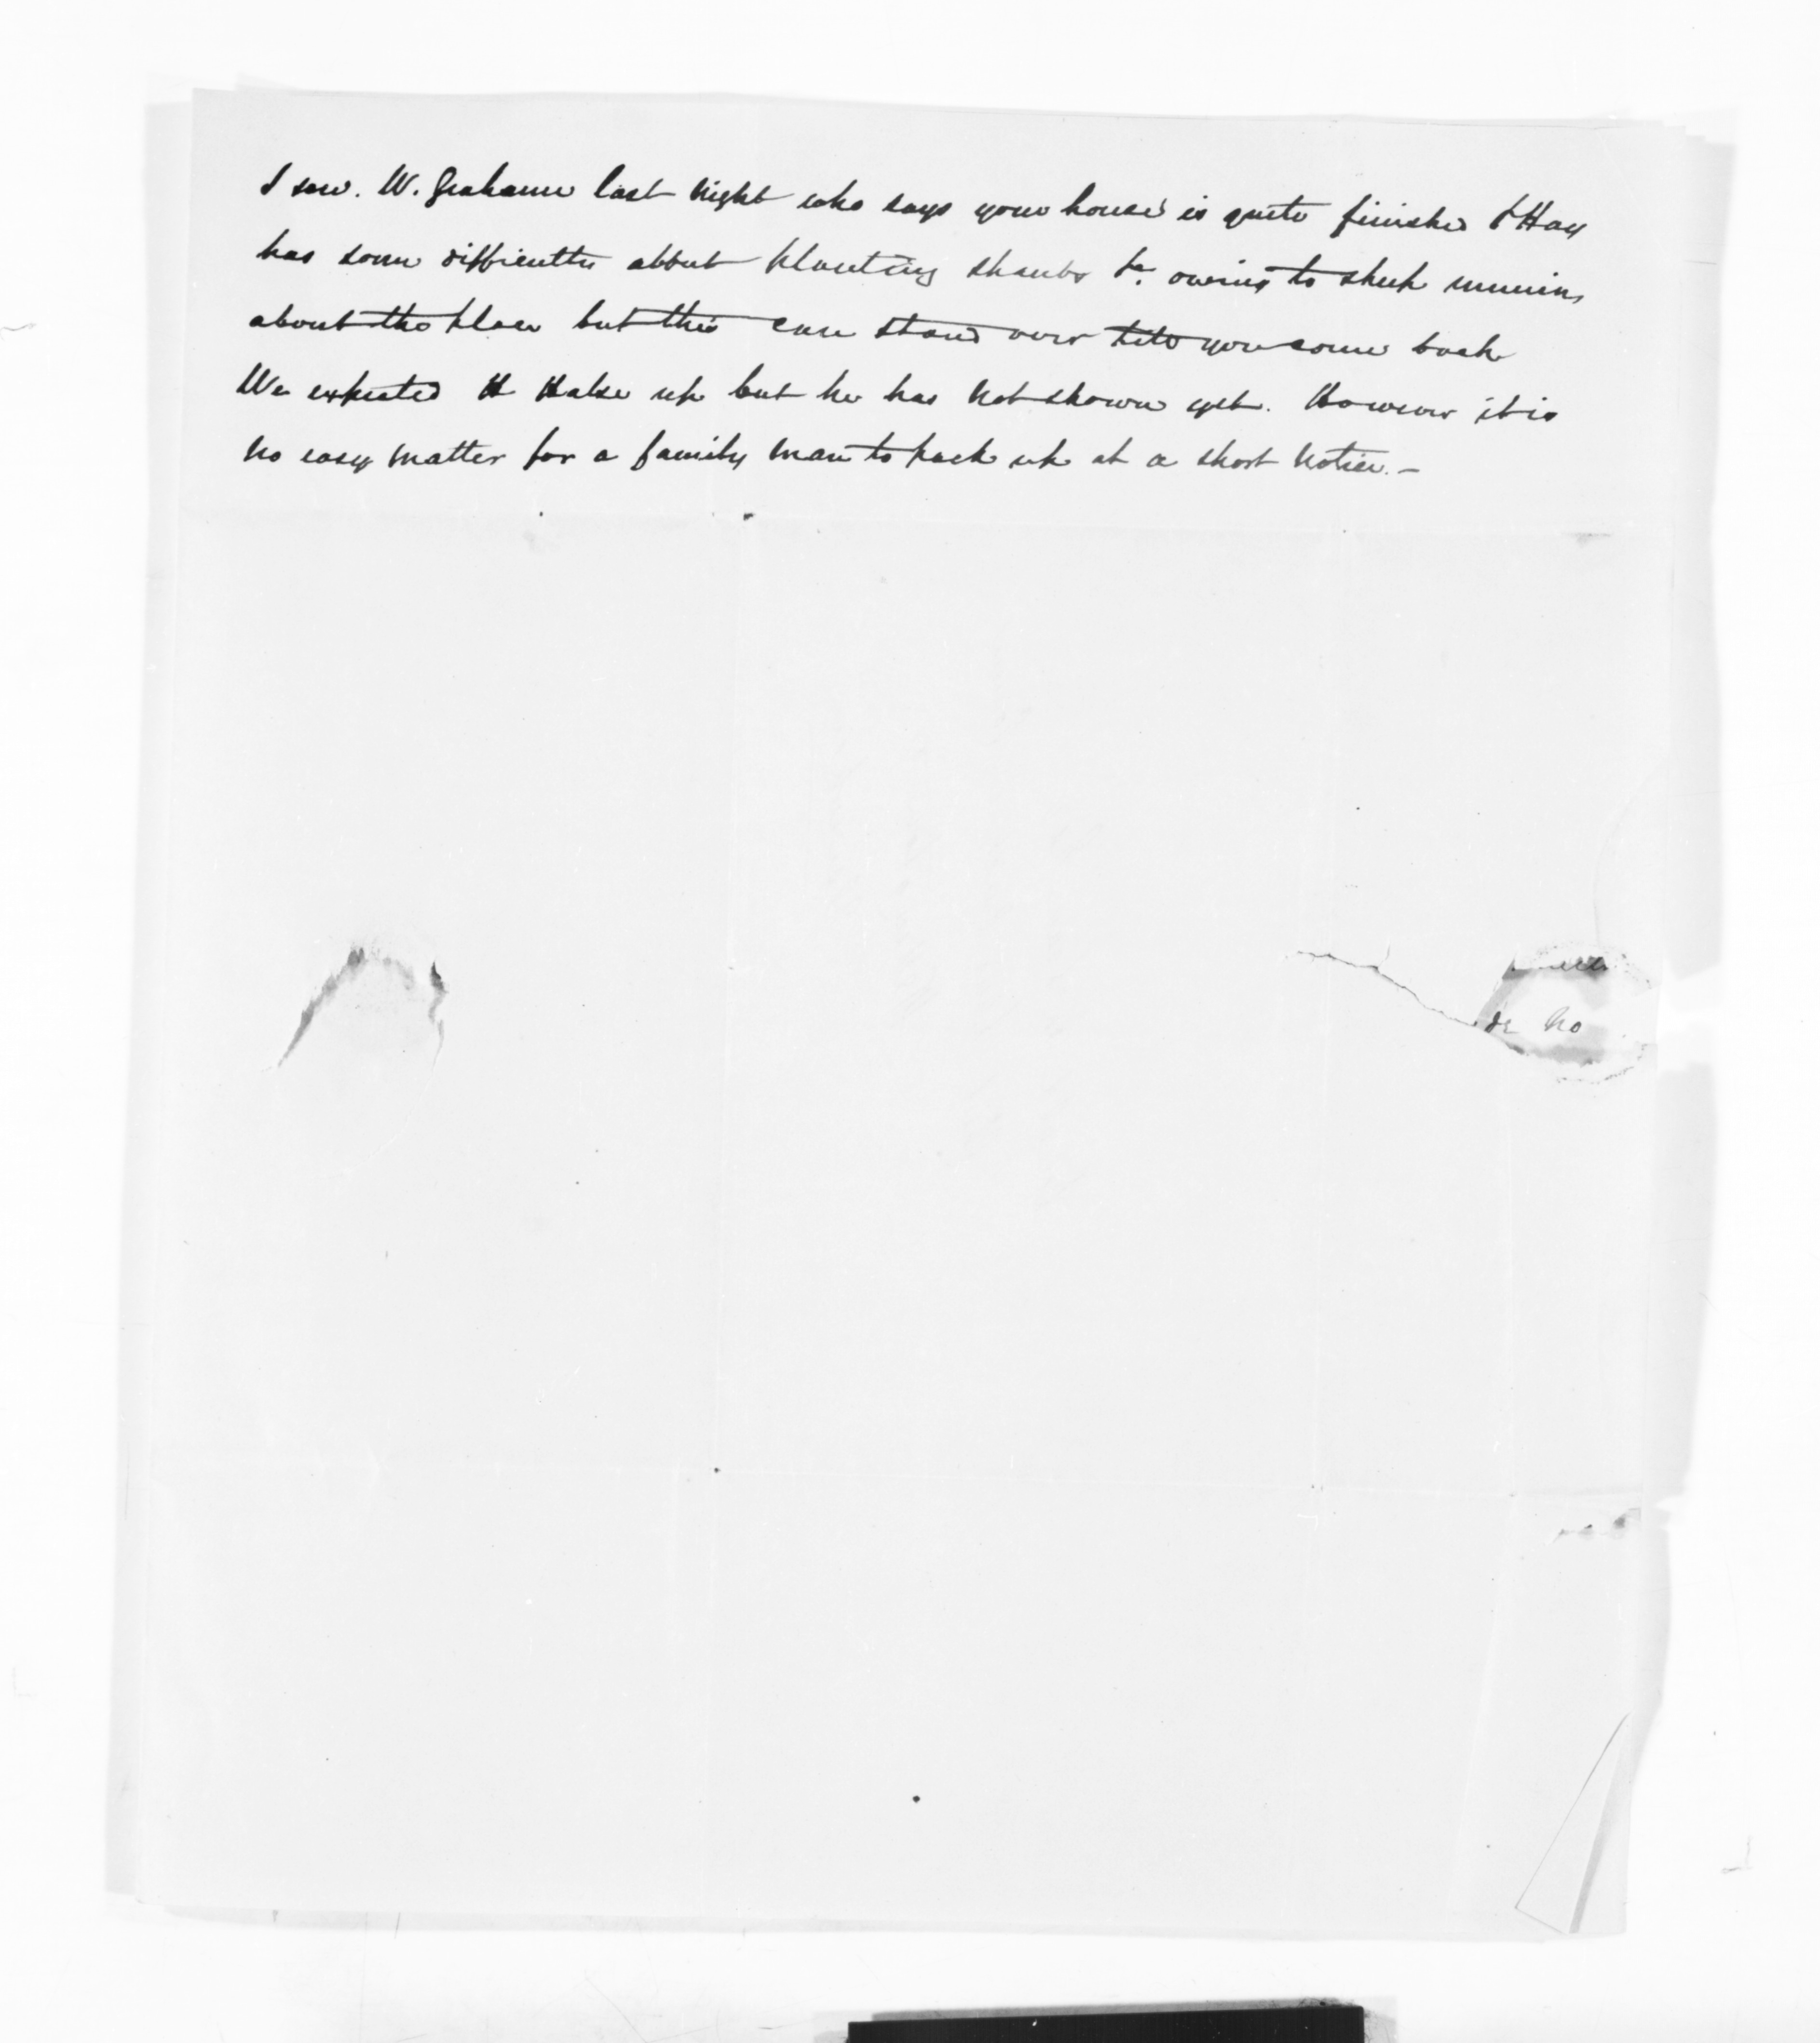 I saw. W. Grahame last night who says your house is quite finished & Hay
has some difficulty about planting shrubs &c. owing to sheep running
about the place but this can stand over till you come back
We expected H Halse up but he has not shown yet. However it is
no easy matter for a family man to pack up at a short notice. –
de no